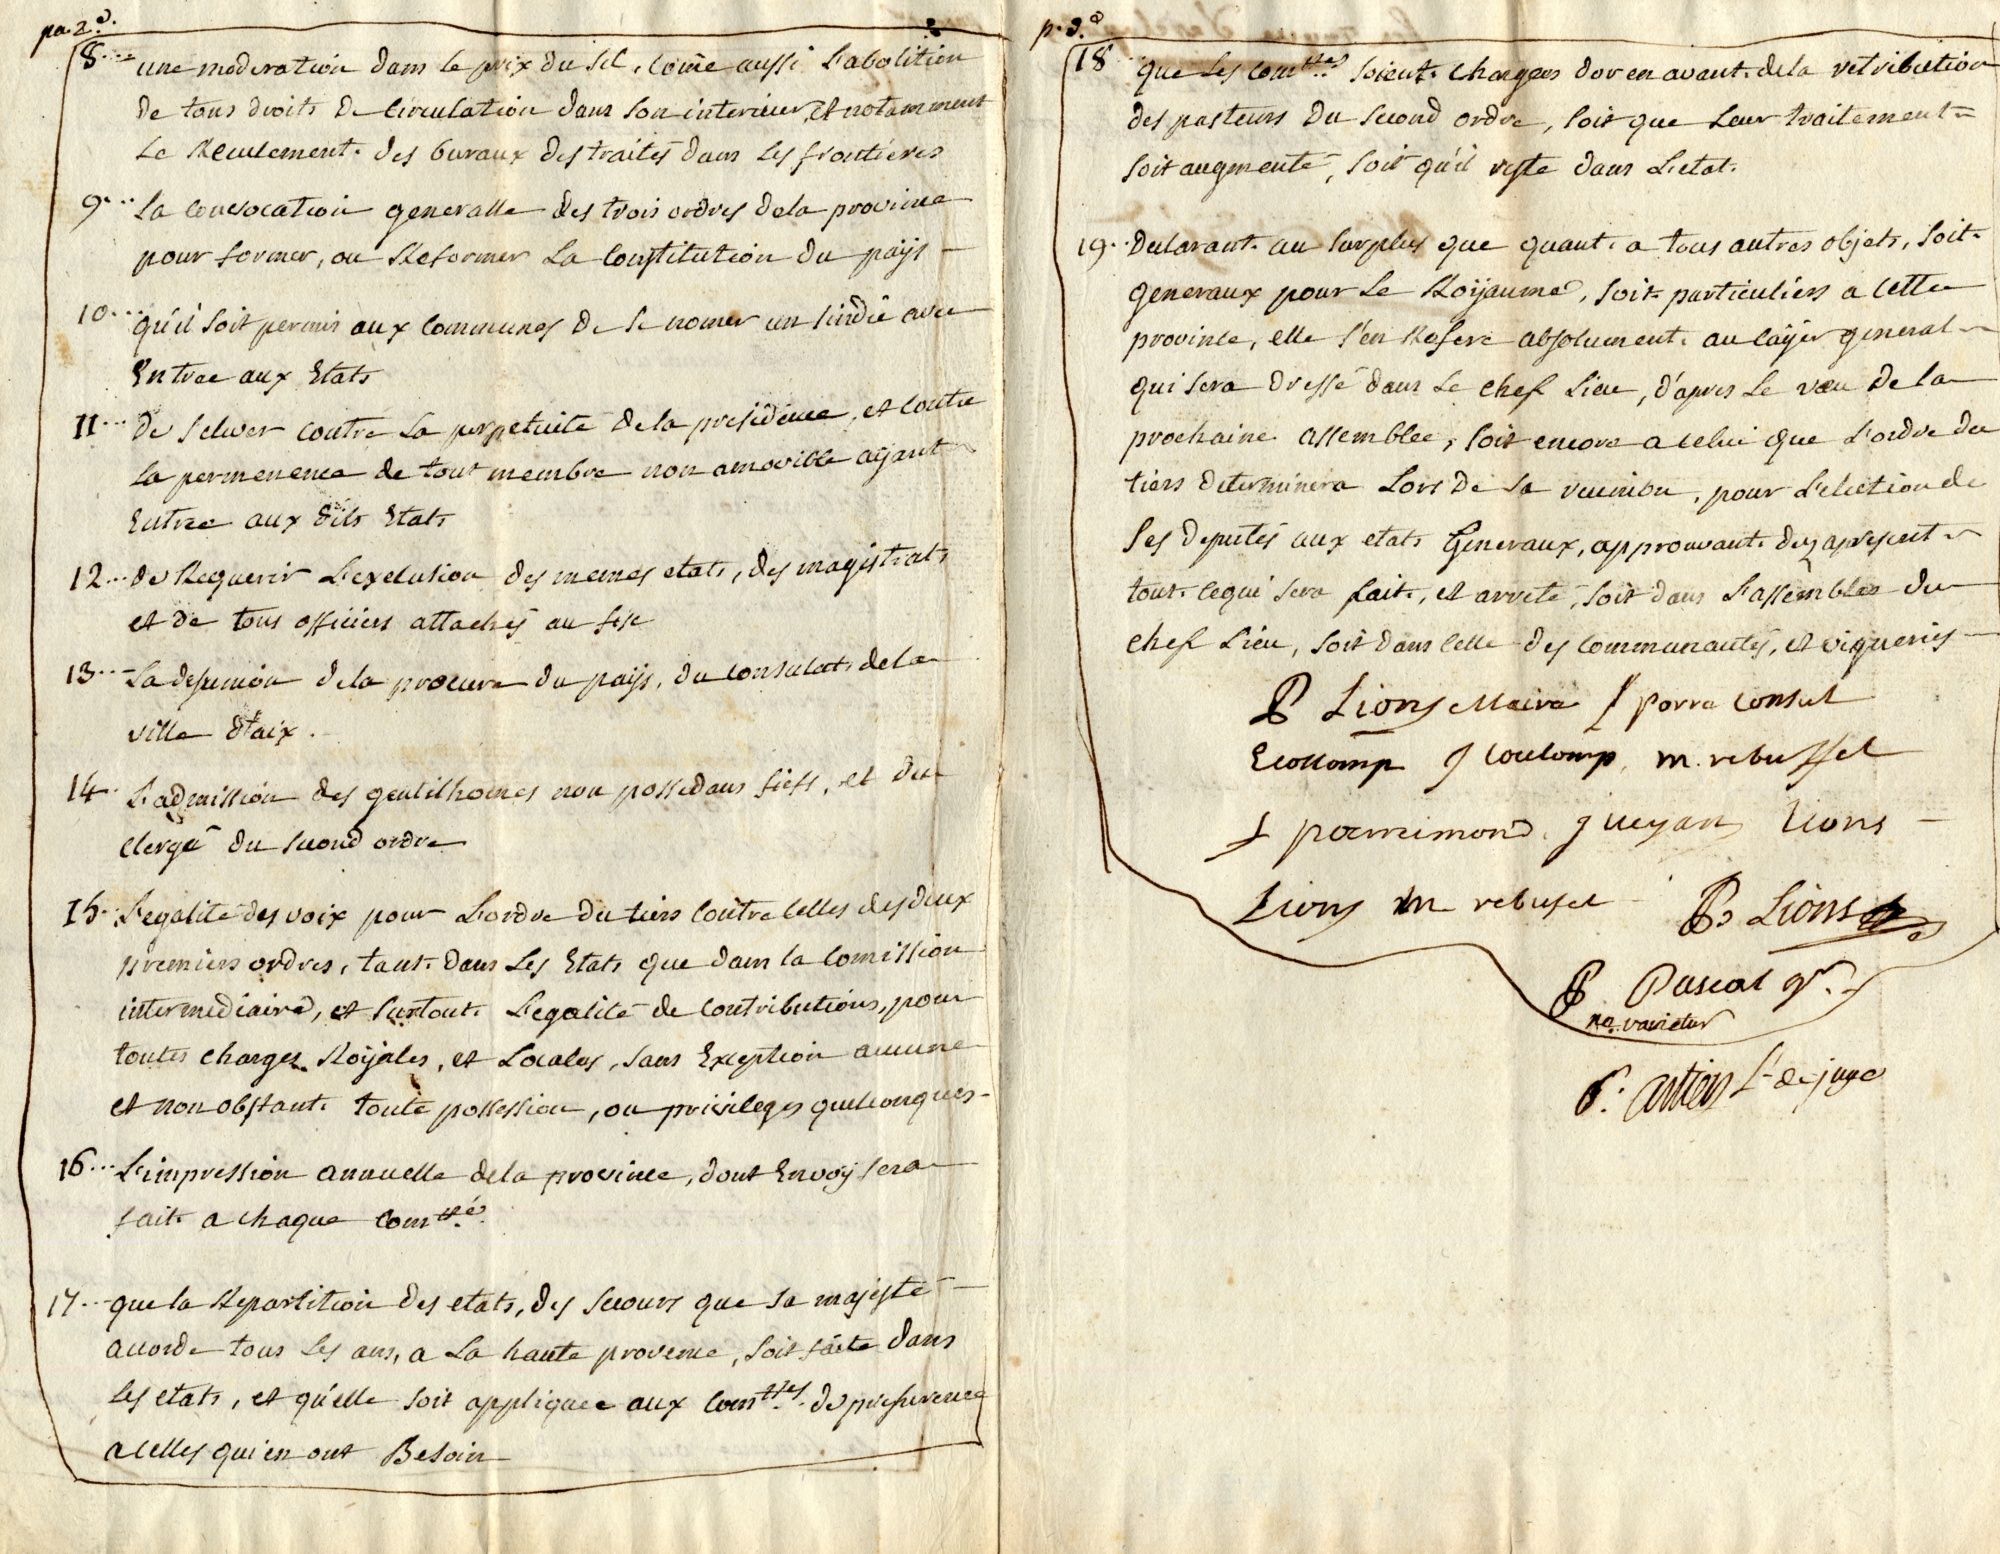 pa. 2e.
8... une moderation dans le prix du sel, come aussi l'abolition
de tous droits de circulation dans son interieur, et notamment
le Reculement des buraux des traites dans les frontieres
9... la convocation generalle des trois ordres de la province
pour former, ou Reformer la constitution du païs
10... qu'il soit permis aux communes de se nomer un sindic avec
Entree aux Etats
11... de Relever contre la perpetuité de la presidence, et contre
la permenence de tout membre non amovible aÿant
Entree aux dits Etats
12... de Requerir l'exclusion des memes etats, des magistrats
et de tous officiers attachés au fisc
13... La desunion de la procure du païs, du consulat de la
ville d'aix.
14. L'admission des gentilhomes non possedans fiefs, et du
clergé du second ordre
15. L'egalité des voix pour l'ordre du tiers contre celles des deux
premiers ordres, tant dans les Etats que dans la comission
intermediaire, et surtout l'egalité de contributions, pour
toutes charges Roÿales, et Locales, sans Exception aucune
et non obstant toute possession, ou privileges quelconques
16... L'impression annuelle de la province, dont Envoÿ sera
fait a chaque comtté.
17... que la Repartition des etats, des secours que sa majesté
accorde tous les ans, a la haute provence, soit faite dans
les etats, et qu'elle soit appliquee aux comttes. de preference
a celles qui en ont Besoin
p. 3.e
18 que les comttes soient chargées dorenavant de la retribution
des pasteurs du second ordre, soit que leur traitement
soit augmenté, soit qu'il reste dans l'etat.
19.. Declarant au surplus que quant a tous autres objets, soit
generaux pour le Roÿaume, soit particuliers a cette
province, elle s'en Refere absolument au caÿer general
qui sera dressé dans le chef lieu, d'apres le vœu de la
prochaine assemblee, soit encore a celui que l'ordre du
tiers determinera lors de sa reunion, pour l'election de
ses deputés aux etats Generaux, approuvant des apresent
tout ce qui sera fait, et arreté, soit dans l'assemblee du
chef lieu, soit dans celle des communautés, et vigueries
P Lions Maire f porre consul
E coulomp J coulomp, m. rebuffel
f parrimond, J ueyan Lions
Lions m rebufel P. Lions
P Pascal gr.
ne varietur
P. autier Lt de juge